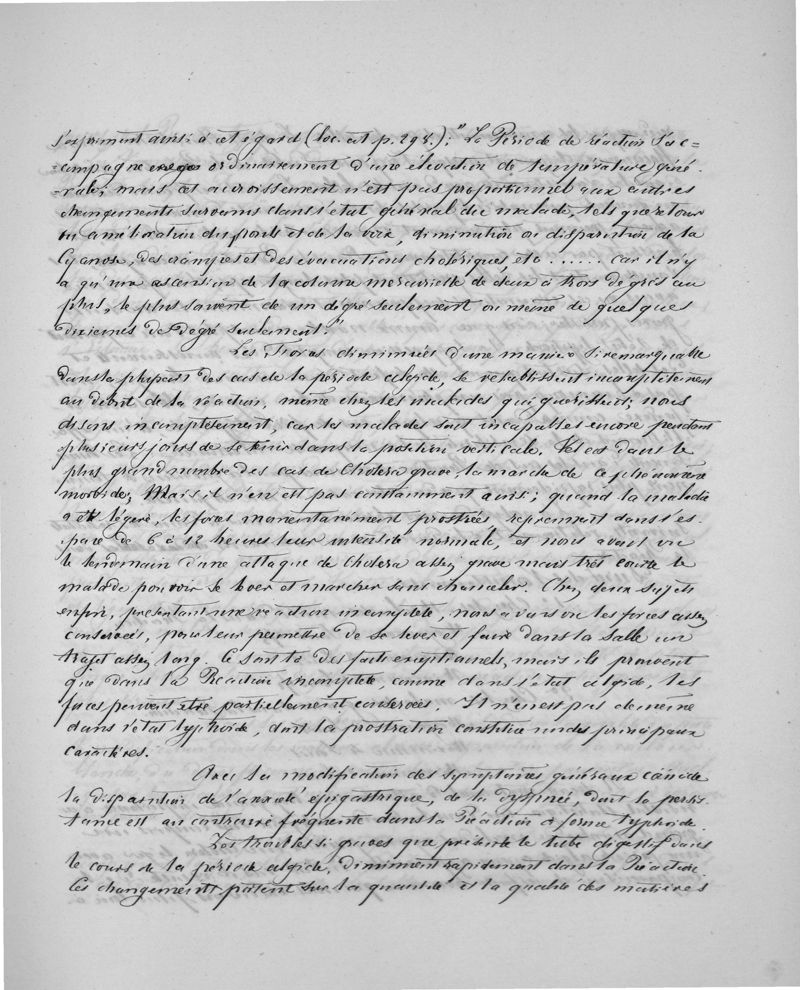 s'expriment ainsi à cet égard (loc. cit p. 298.): "La Période de réaction s'ac=
=compagne ordinairement d'une élévation de température géné-
-rale; mais cet accroissement n'est pas proportionnel aux autres
changements survenus dans l'état général du malade, tels que retour
ou amélioration du pouls et de la voix, diminution ou disparition de la
Cyanose, des crampes et des évacuations cholériques, etc ...... car il n'y
a qu'une ascension de la colonne mercurielle de deux à trois dégrés au
plus, le plus souvent de un dégré seulement ou même de quelques
dixiemes de dégré seulement."
Les Forces diminuées d'une manière si remarquable
dans la plupart des cas de la période algide, se rétablissent incomplètement
au début de la réaction, même chez les malades qui guérissent; nous
disons incomplètement, car les malades sont incapables encore pendant
plusieurs jours de se tenir dans la position verticale. Tel est dans le
plus grand nombre des cas de Cholera grave, la marche de ce phénomène
morbide; Mais il n'en est pas constamment ainsi; quand la maladie
a été légère, les forces momentanément prostrées, reprennent dans l'es-
pace de 6 à 12 heures leur intensité normale, et nous avons vu
le lendemain d'une attaque de Cholera assez grave mais très courte le
malade pouvoir se lever et marcher sans chanceler. Chez deux sujets
enfin, présentant une réaction incomplète, nous avons vu les forces assez
conservées, pour leur permettre de se lever et faire dans la salle un
trajet assez long. Ce sont là des faits exceptionnels, mais ils prouvent
que dans la Réaction incomplète, comme dans l'état algide, les
forces peuvent être partiellement conservées. Il n'en est pas de même
dans l'état typhoïde, dont la prostration constitue un des principaux
caractères.
Avec la modification des symptômes généraux coincide
la disparition de l'anxieté épigastrique, de la dyspnée, dont la persis-
tance est au contraire fréquente dans la Réaction à forme typhoïde.
Les troubles si graves que présente le tube digestif dans
le cours de la période algide, diminuent rapidement dans la Réaction.
Les changements portent sur la quantité et la qualité des matières